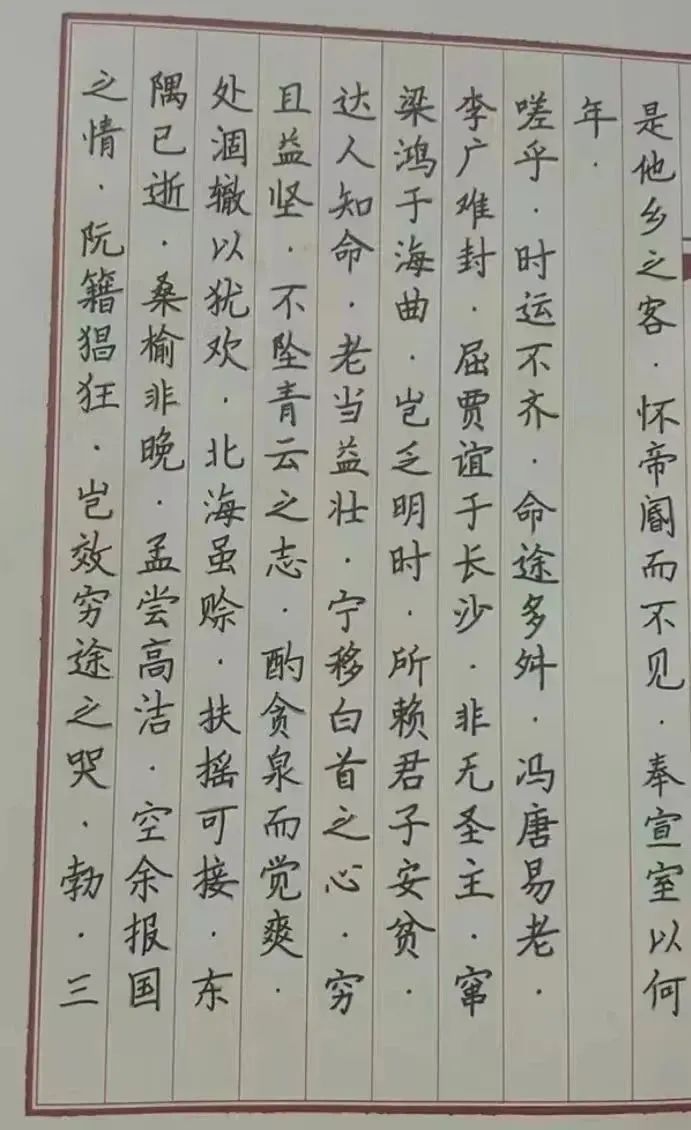 是他乡之客·怀帝阍而不见·奉宣室以何
年·
嗟乎·时运不齐·命途多舛·冯唐易老·
李广难封·屈贾谊于长沙·非无圣主·窜
梁鸿于海曲·岂乏明时·所赖君子安贫·
达人知命·老当益壮·宁移白首之心·穷
且益坚·不坠青云之志·酌贪泉而觉爽·
处涸辙以犹欢·北海虽赊·扶摇可接·东
隅已逝·桑榆非晚·孟尝高洁·空余报国
之情·阮籍猖狂·岂效穷途之哭·勃·三